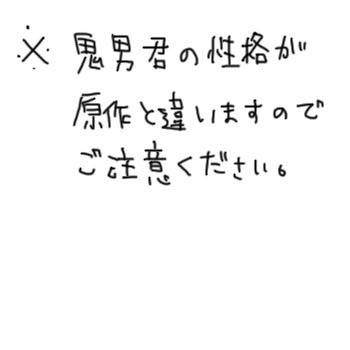 ※鬼男君の性格が
原作と違いますので
ご注意ください。